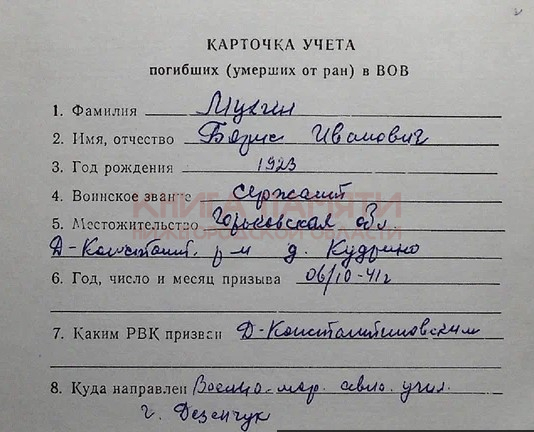 КАРТОЧКА УЧЕТА
погибших (умерших от ран) в ВОВ
1. Фамилия Мухин
2. Имя, отчество Борис Иванович
3. Год рождения 1923
4. Воинское звание сержант
КНИГА ПАМЯТИ
НИЖЕГОРОДСКОЙ ОБЛАСТИ
5. Местожительство Горьковская обл.
Д-Констант. р-н д. Кудрино
6. Год, число и месяц призыва 06/10-41г
7. Каким РВК призван Д-Константиновским
8. Куда направлен Военно-мор. авиа. учил.
г. Безенчук